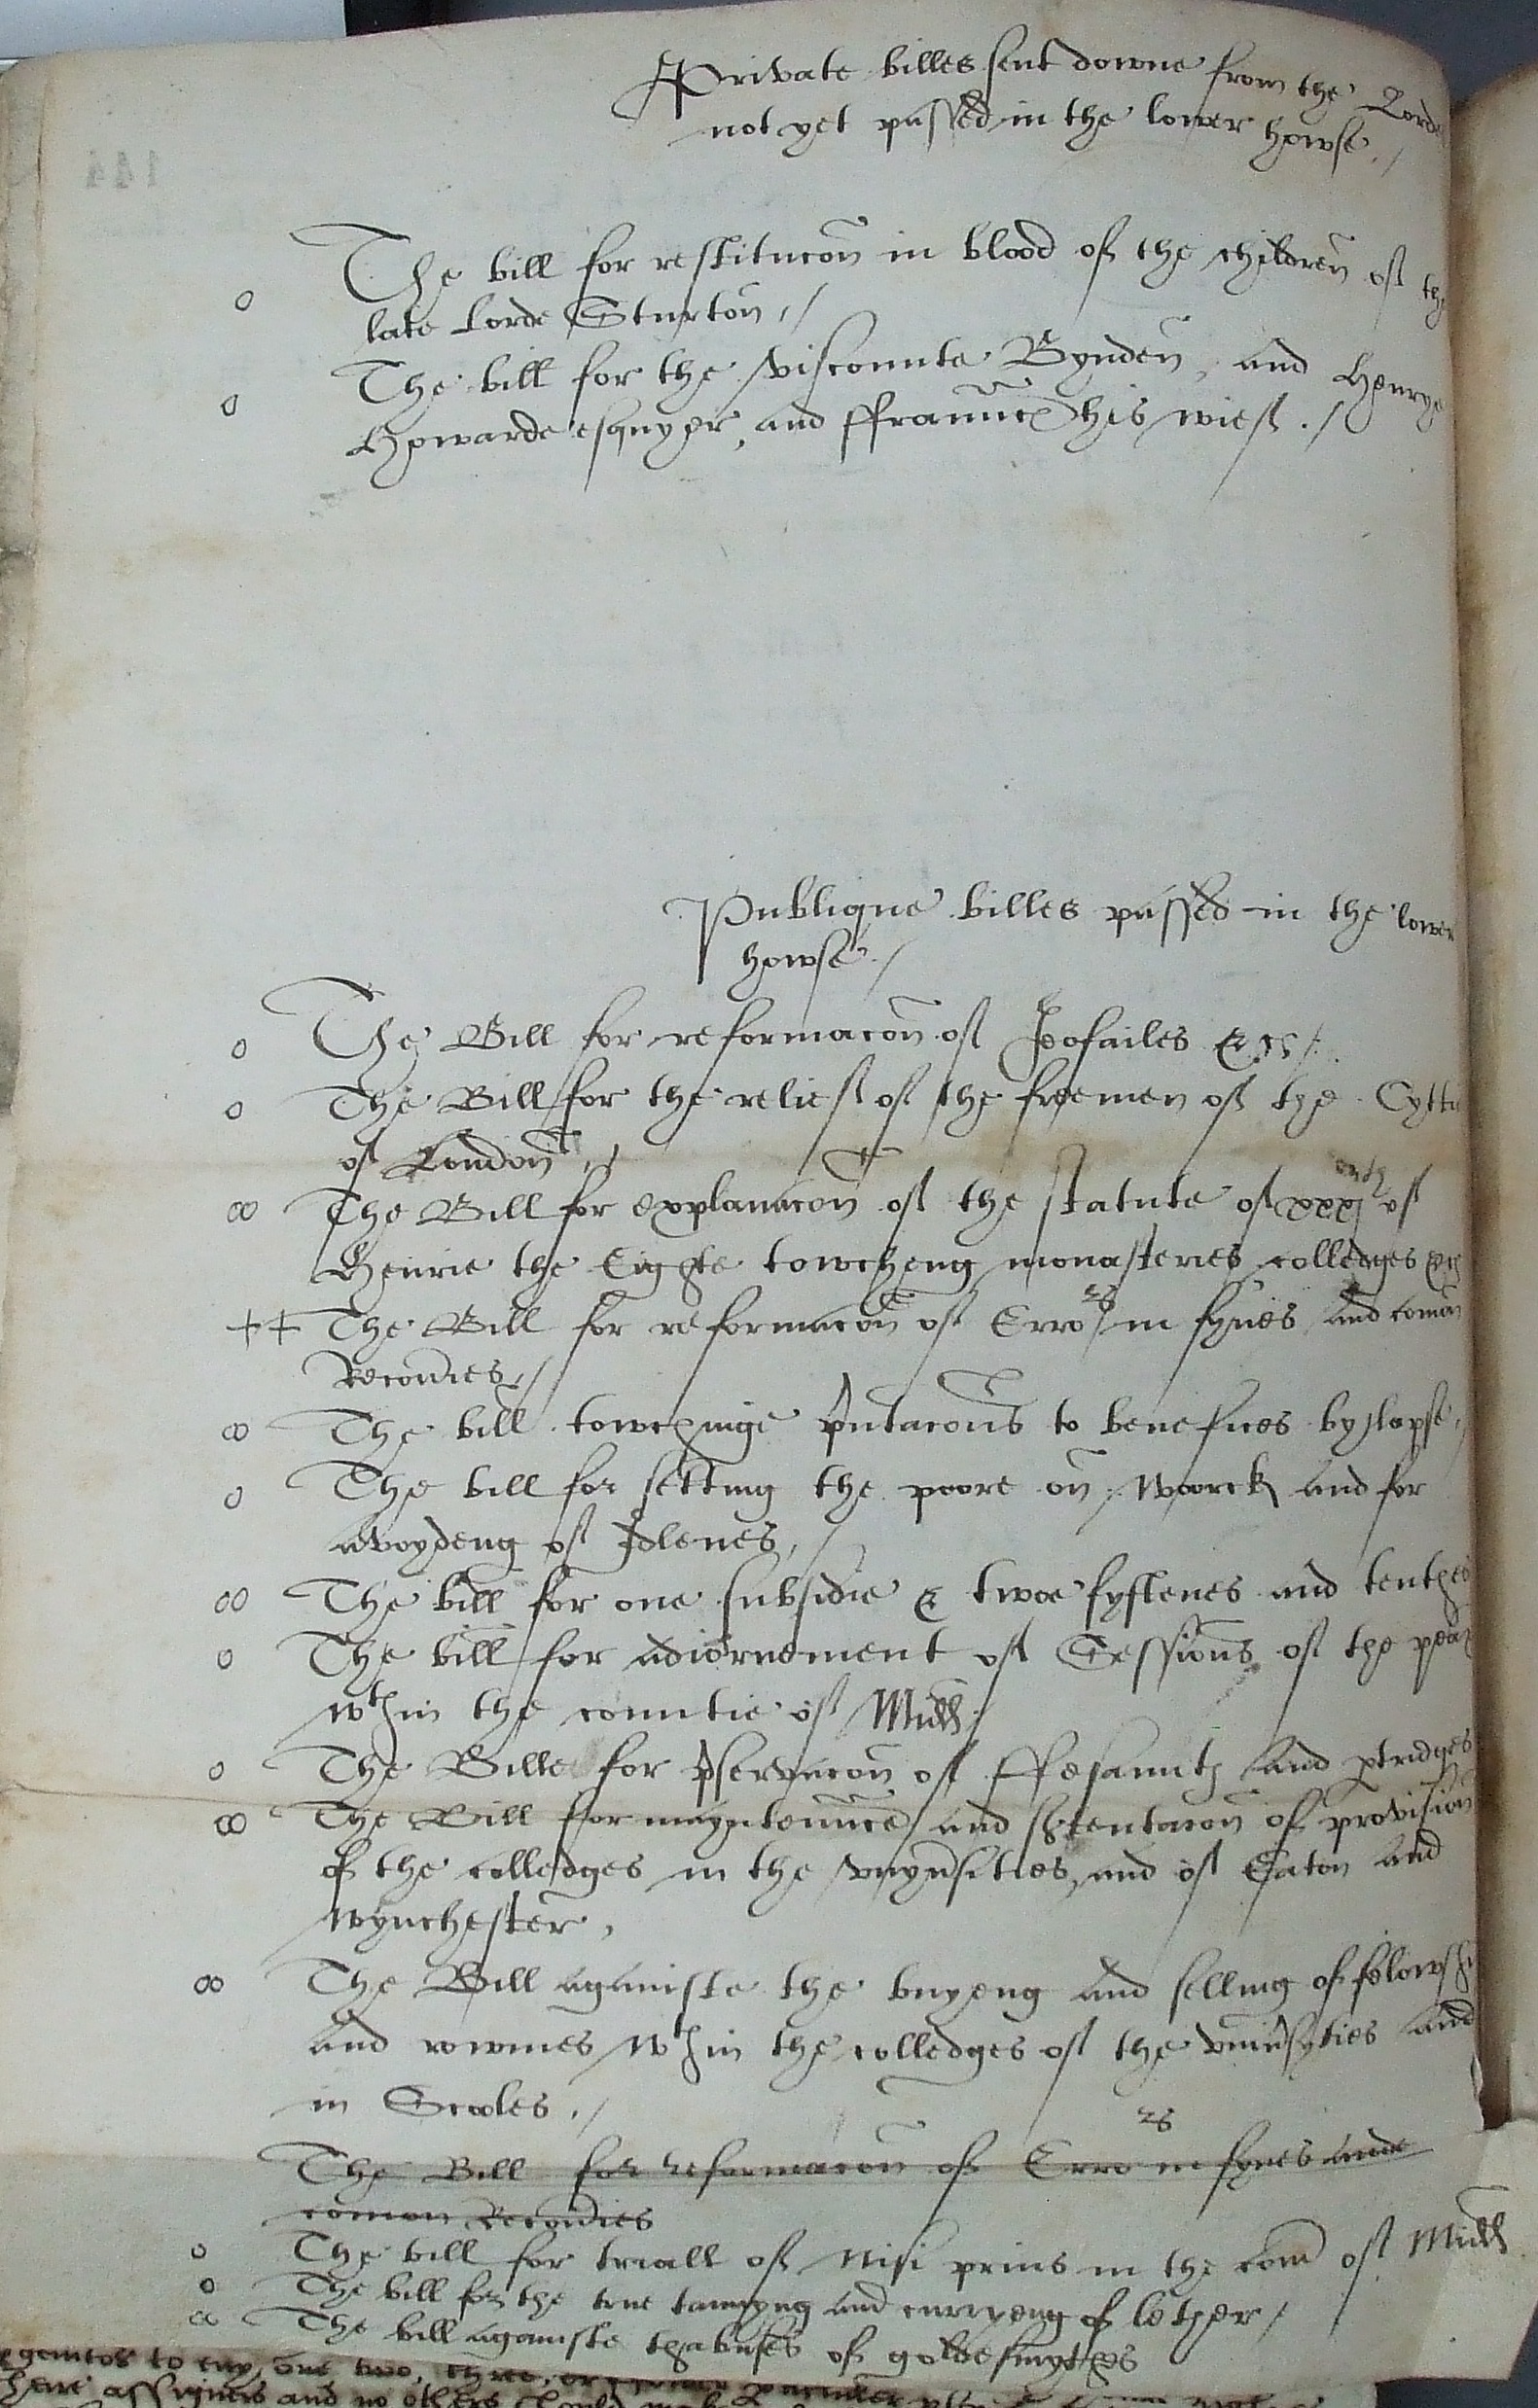 Private billes sent downe from the Lorde
not yet passed in the lower howse./
The bill for restitucon in blood of the children of the
late Lorde Sturton,/
The bill for the viscounte Bynden, and Henrye
Howarde esquyer, and ffraunc his wief./
Publique billes passed in the lower
howse./
o The Bill for reformacon of Jeofailes &c/.
o The Bill for the relief of the freemen of the Cytti
of London,/
oo The Bill for explanacon of the statute of xxxj of
Henrie the Eighte towcheng monasteries colledges &c
++ The Bill for reformacon of Erro rs in fynes, and comon
Recoveries,/
oo The bill towchinge pntacons to benefices by lapse,/
o The bill for setting the poore on woorck and for
avoydeng of Idlenes,/
oo The bill for one subsidie & twoe fyftenes and tenthes
o The bill for adiornement of Sessions of the peax
wthin the countie of Midd.
o The Bille for pservacon of ffesaunts and ptridges
oo The Bill for mayntenance and sustentacon of provision
of the colledges in the vnyvsities, and of Eaton and
wynchester,
oo The Bill againste the buyeng and selling of felowshi
and rowmes wthin the colledges of the vnivsyties and
in Scoles,/
The Bill for reformacon of Erro rs in fynes and
comon Recoveries
o The bill for triall of Nisi prius in the com of Midd
o The bill for the true tannyng and curryeng of lether/
oo The bill againste thabuses of goldesmythes
to eny, one two, three, or
assignes and no others